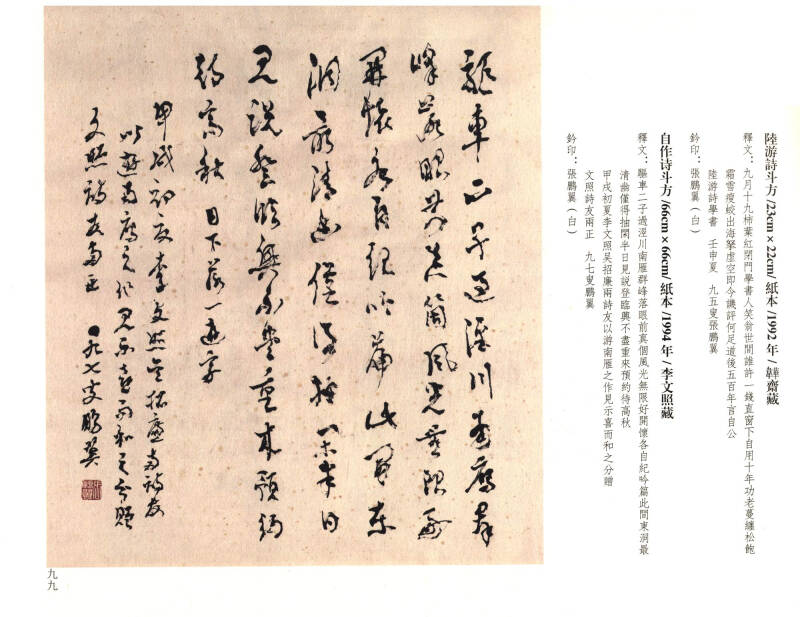 陸游詩斗方 /23cm × 22cm/ 紙本 /1992 年 / 韡齋藏
釋文：九月十九柿葉紅閉門學書人笑翁世間誰許一錢直窗下自用十年功老蔓纏松飽
霜雪瘦蛟出海拏虛空即今譏評何足道後五百年言自公
陸游詩學書　壬申夏　九五叟張鵬翼
鈐印：張鵬翼（白）
自作诗斗方 /66cm × 66cm/ 紙本 /1994 年 / 李文照藏
釋文：驅車二子過涇川南雁群峰落眼前真個風光無限好開懷各自紀吟篇此間東洞最
清幽僅得抽閑半日見說登臨興不盡重來預約待高秋
甲戌初夏李文照吴招廉兩詩友以游南雁之作見示喜而和之分贈
文照詩友兩正　九七叟鵬翼
鈐印：張鵬翼（白）
驅車二子過涇川南雁群
峰落眼前真箇風光無限好
開懷各自紀吟篇此間東
洞最清幽僅得抽閑半日
見說登臨興不盡重來預約
待高秋 日下落一遊字
甲戌初夏李文照吳招廉兩詩友
以遊南雁之作見示喜而和之分贈
文照詩友兩正 九七叟鵬翼
九九